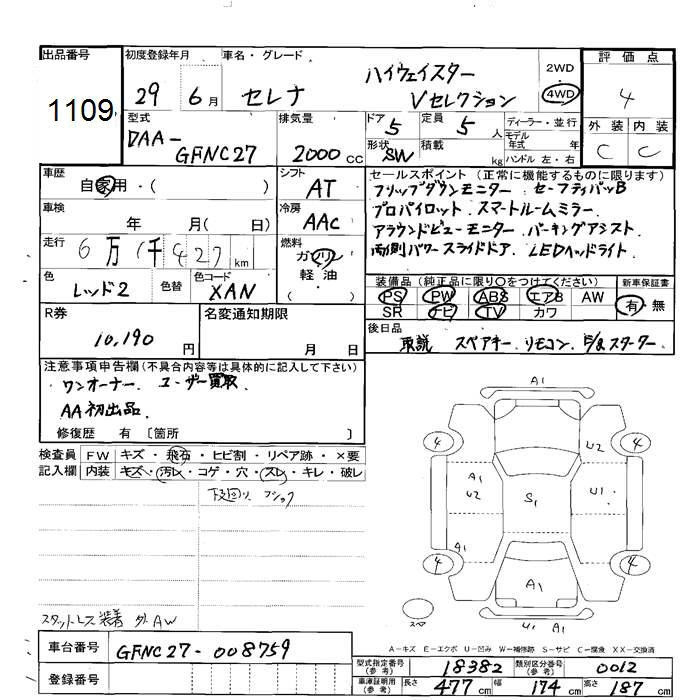 出品番号
1109
初度登録年月
29 6月
車名・グレード
セレナ ハイウェイスター
Vセレクション
2WD
4WD
評価点
4
外装 内装
C C
型式
DAA-
GFNC27
排気量
2000 CC
ドア 5
形状 SW
定員 5 人
積載 kg
ディーラー・並行
モデル
年式 年
ハンドル 左・右
車歴
自家用・( )
シフト
AT
車検
年 月( 日)
冷房
AAC
走行
6万1千427 km
燃料
ガソリン
軽油
( )
色
レッド2
色替
色コード
XAN
セールスポイント (正常に機能するものに限ります)
フリップダウンモニター セーフティパックB
プロパイロット スマートルームミラー
アラウンドビューモニター パーキングアシスト
両側パワースライドドア LEDヘッドライト
装備品 (純正品に限り○をつけてください)
PS PW ABS エアB AW
SR ナビ TV カワ
新車保証書
有・無
R券
10,190 円
名変通知期限
月 日
後日品
取説 スペアキー リモコン スターター
注意事項申告欄(不具合内容等は具体的に記入して下さい)
ワンオーナー ユーザー買取
AA初出品
修復歴 有 〔箇所 〕
検査員
記入欄
FW キズ・飛石・ヒビ割・リペア跡・×要
内装 キズ・汚レ・コゲ・穴・スレ・キレ・破レ
下回り
スタットレス装着 外AW
A1
4 4
U2
A1
U2
S1
U1
A1
4 4
A1
スペア
U1 A1
A-キズ E-エクボ U-凹み W-補修跡 S-サビ C-腐食 XX-交換済
車台番号
GFNC27-008759
登録番号
型式指定番号
(参考)
18382
類別区分番号
(参考)
0012
車庫証明用
(参考)
長さ 477 cm 幅 174 cm 高さ 187 cm